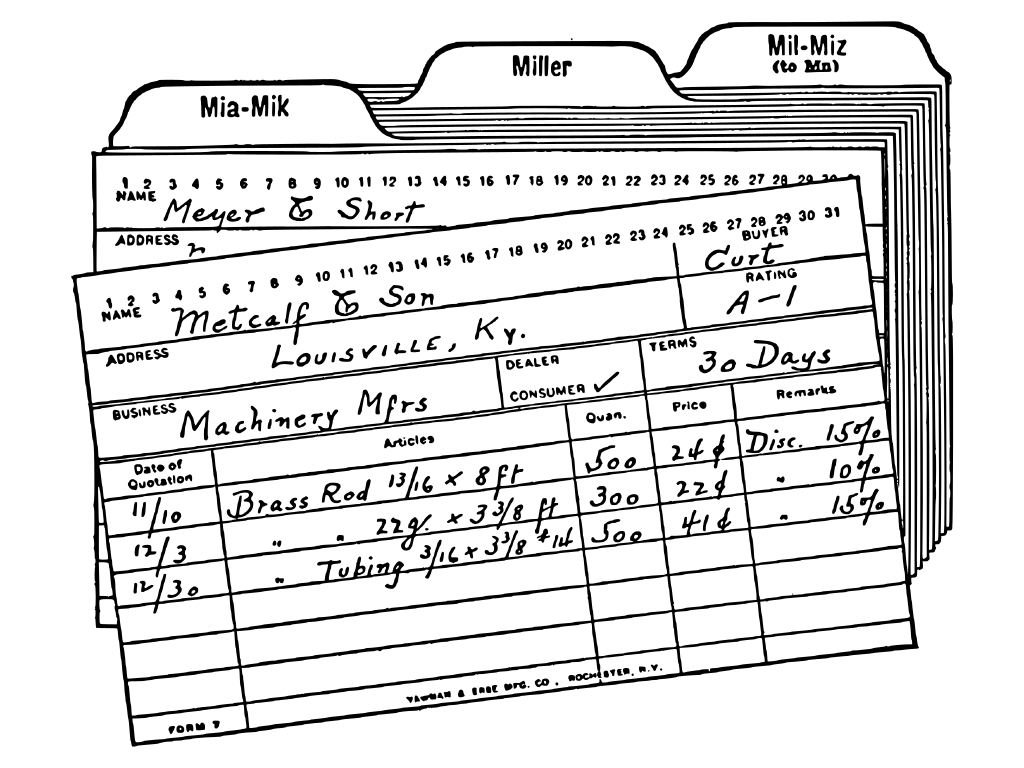 Mil-Miz
(to Mn)
Miller
Mia-Mik
1 2 3 4 5 6 7 8 9 10 11 12 13 14 15 16 17 18 19 20 21 22 23 24 25 26 27 28 29 30
NAME Meyer & Short
ADDRESS
1 2 3 4 5 6 7 8 9 10 11 12 13 14 15 16 17 18 19 20 21 22 23 24 25 26 27 28 29 30 31
NAME Metcalf & Son BUYER Curt
ADDRESS Louisville, Ky. RATING A-1
BUSINESS Machinery Mfrs DEALER CONSUMER ✓ TERMS 30 Days
Date of Quotation Articles Quan. Price Remarks
11/10 Brass Rod 13/16 x 8 ft 500 24¢ Disc. 15%
12/3 " " 22g. x 3 3/8 ft 300 22¢ " 10%
12/30 " Tubing 3/16 x 3 3/8 500 41¢ " 15%
YAWMAN & ERBE MFG. CO., ROCHESTER, N.Y.
FORM 7